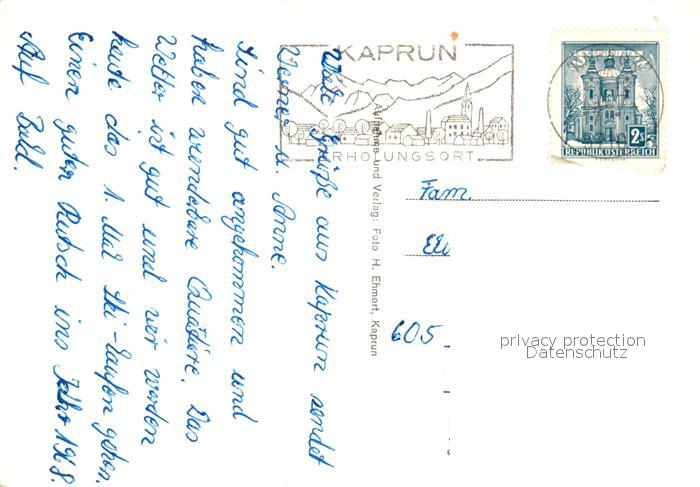 KAPRUN
ERHOLUNGSORT
2S
REPUBLIK ÖSTERREICH
Viele Grüße aus Kaprun sendet
Werner u. Anne.
Sind gut angekommen und
haben wunderbare Quartiere. Das
Wetter ist gut und wir werden
heute das 1. Mal Ski-laufen gehen.
Einen guten Rutsch ins Jahr 1968.
Auf Bald.
Aufnahme und Verlag: Foto H. Ehmert, Kaprun
Fam.
605
privacy protection
Datenschutz